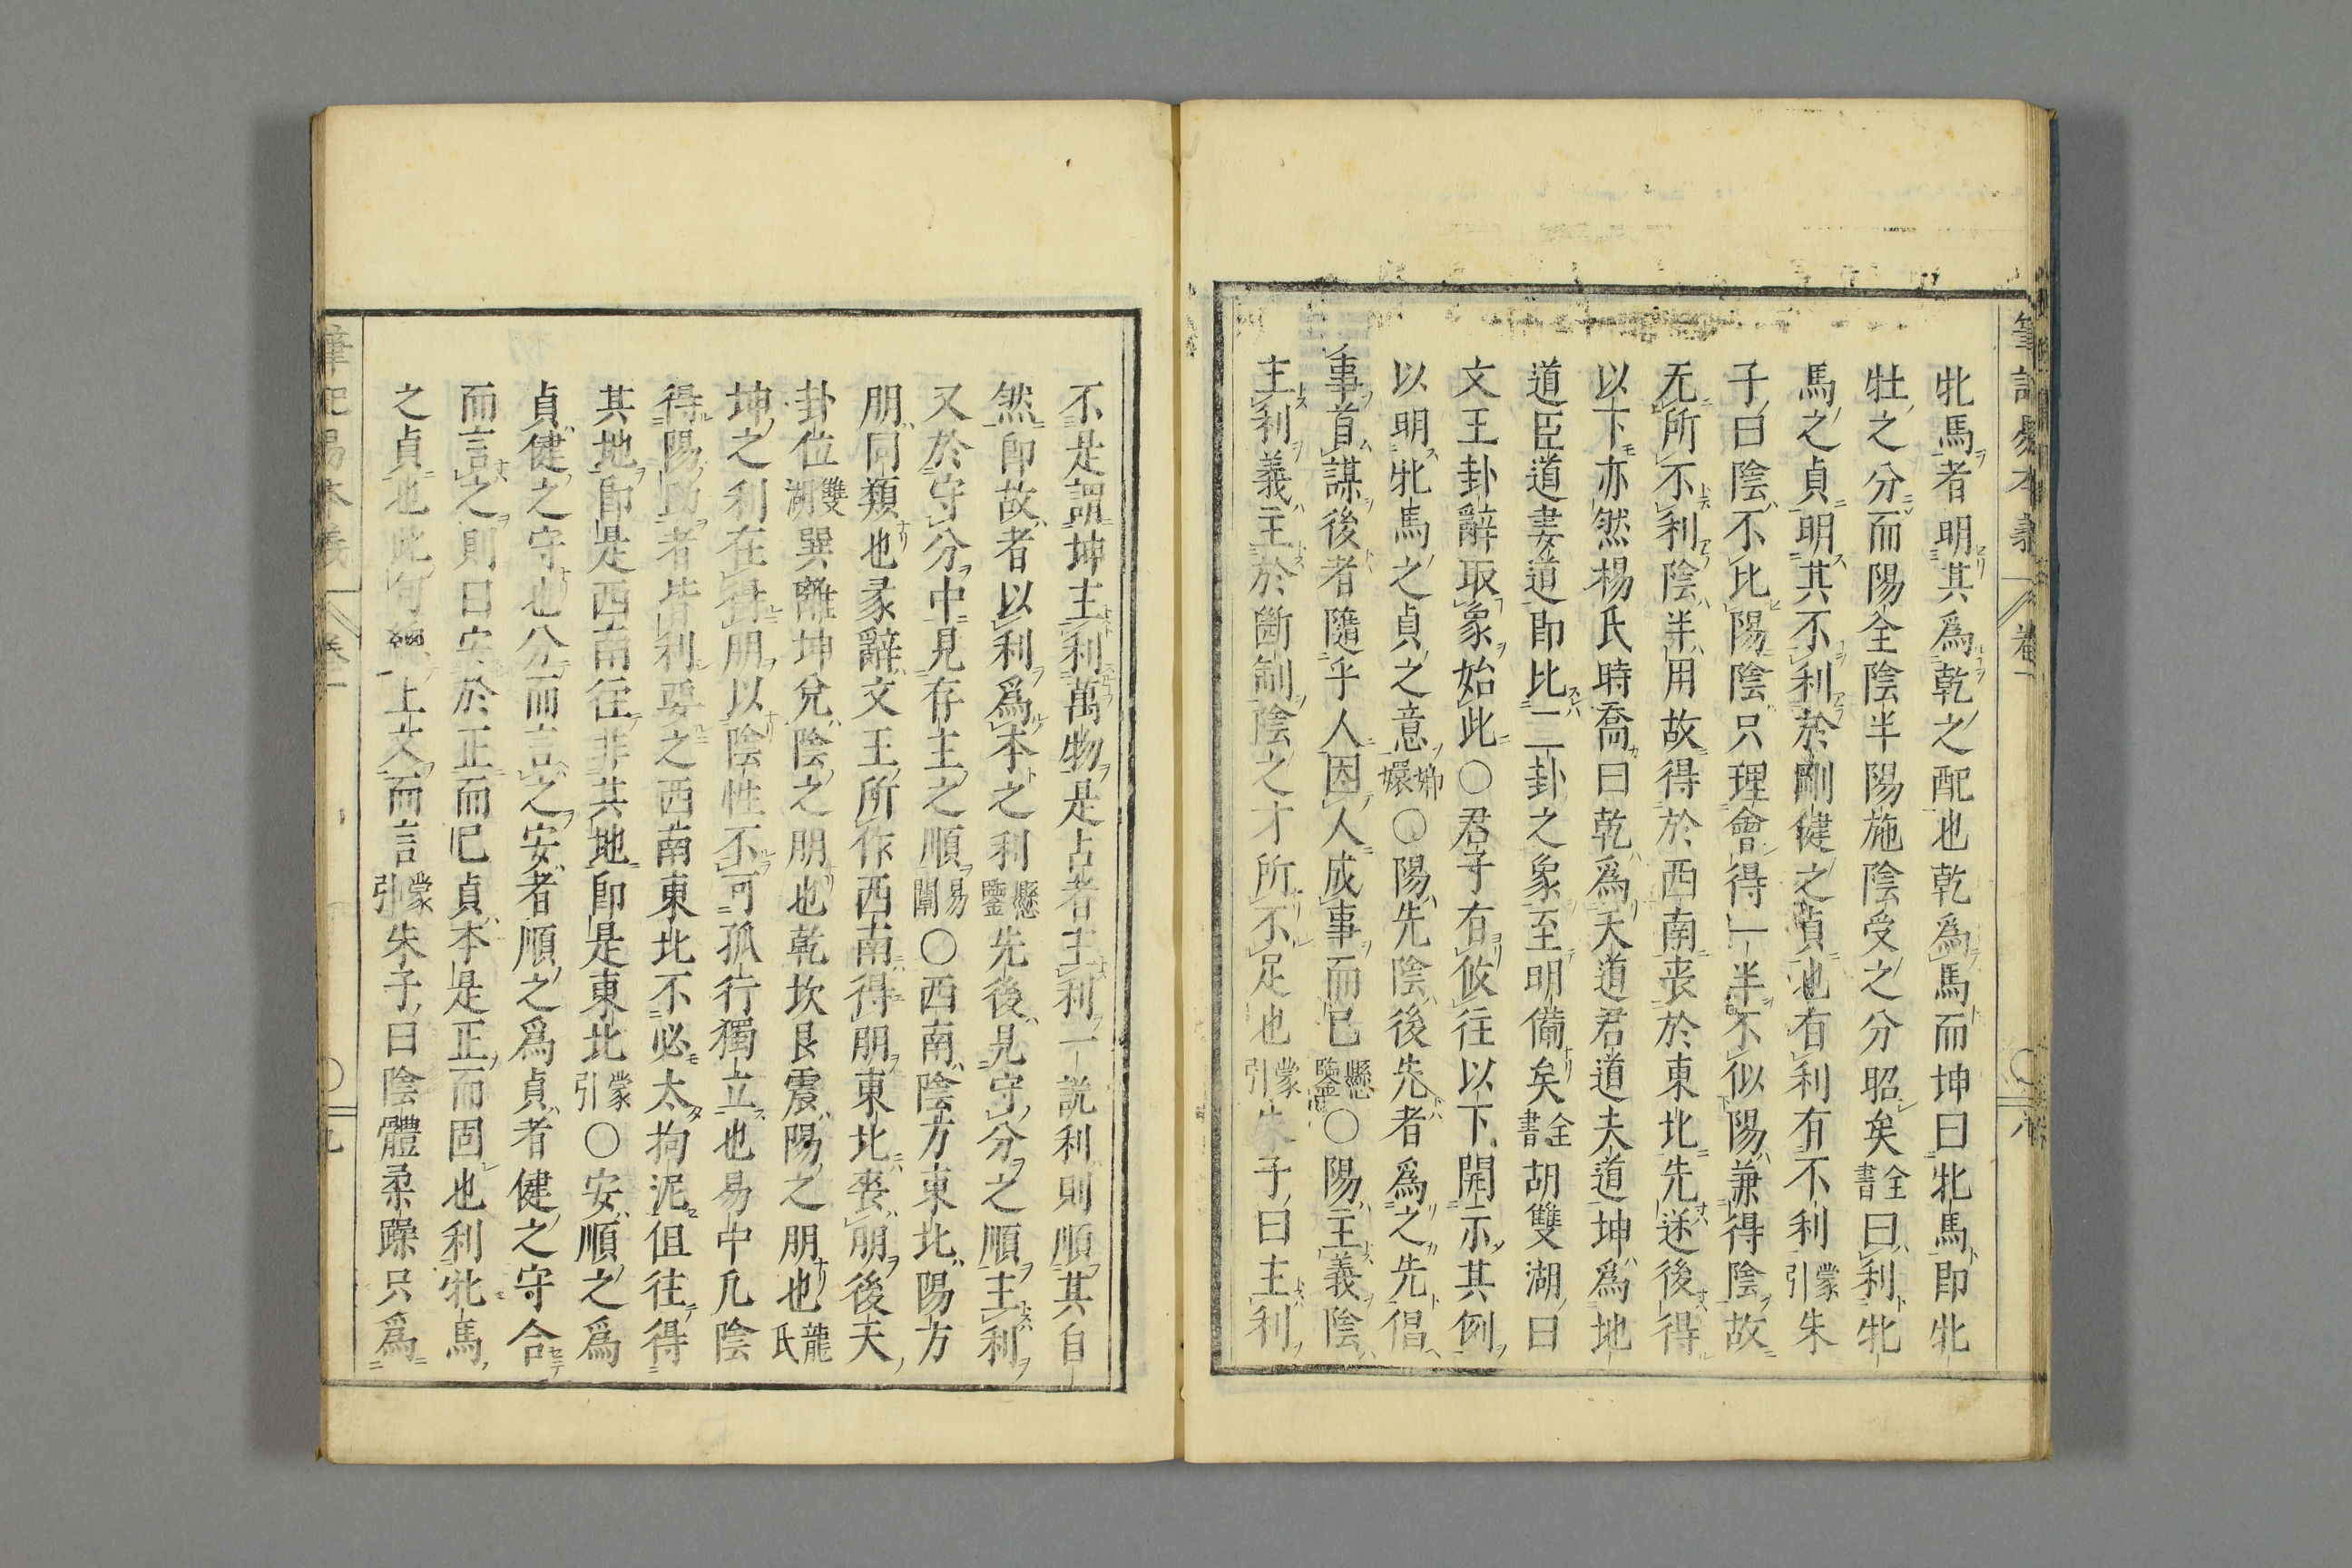 筆記易本義 卷一 ○ 八
牝馬者明其爲乾之配也乾爲馬而坤曰牝馬卽牝
牡之分而陽全陰半陽施陰受之分昭矣全書曰利牝
馬之貞明其不利於剛健之貞也有利有不利蒙引朱
子曰陰不比陽陰只理會得一半不似陽兼得陰故
无所不利陰半用故得於西南喪於東北先迷後得
以下亦然楊氏時喬曰乾爲天道君道夫道坤爲地
道臣道妻道卽比二卦之象至明備矣全書胡雙湖曰
文王卦辭取象始此○君子有攸往以下開示其例
以明牝馬之貞之意嫏嬛○陽先陰後先者爲之先倡
事首謀後者隨乎人因人成事而已懸鑒○陽主義陰
主利義主於斷制陰之才所不足也蒙引朱子曰主利
不是謂坤主利萬物是占者主利一說利則順其自
然卽故者以利爲本之利懸鑒先後見守分之順主利
又於守分中見存主之順易闡○西南陰方東北陽方
朋同類也彖辭文王所作西南得朋東北喪朋後天
卦位雙湖巽離坤兌陰之朋也乾坎艮震陽之朋也龍氏
坤之利在得朋以陰性不可孤行獨立也易中凡陰
得陽助者皆利要之西南東北不必太拘泥但往得
其地卽是西南往非其地卽是東北蒙引○安順之爲
貞健之守也分而言之安者順之爲貞者健之守合
而言之則曰安於正而已貞本是正而固也利牝馬
之貞也此句總上文而言蒙引朱子曰陰體柔躁只爲
筆記易本義 卷一 ○ 九